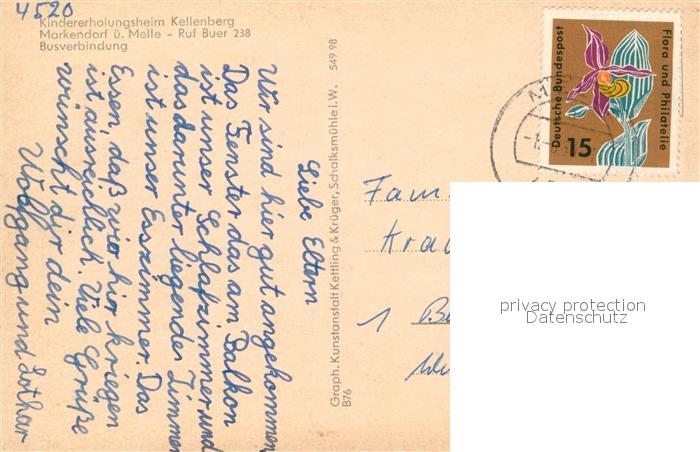 4520
Kindererholungsheim Kellenberg
Markendorf ü. Melle - Ruf Buer 238
Busverbindung
Liebe Eltern
Wir sind hier gut angekommen
Das Fenster das am Balkon
ist unser Schlafzimmer und
das darunter liegender Zimmer
ist unser Esszimmer. Das
Essen, daß wir hir kriegen
ist ausreichlich. Viele Grüße
wünscht dir dein
Wolfgang und Lothar
Graph. Kunstanstalt Kettling & Krüger, Schalksmühle i. W. 549 98
B76
Deutsche Bundespost
Flora und Philatelie
15
Fam
Kra
1 Be
privacy protection
Datenschutz